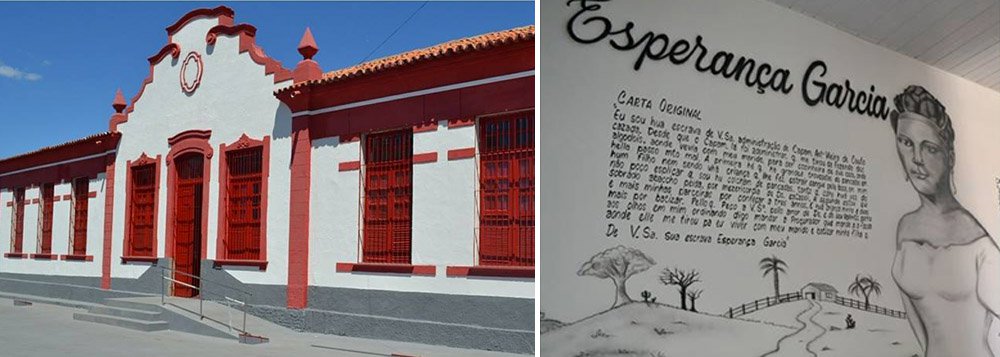 Esperança Garcia
CARTA ORIGINAL
"Eu sou hua escrava de V. Sa. administração de Capam. Antº Vieira de Couto
cazada. Desde que o Capam. lá foi administrar, q. me tirou da fazenda dos
algodois, aonde vevia com meu marido, para ser
hella passo mto mal. A primeira
hum Filho nem sendo uhã criança q. lhe fez
não poço esplicar q. sou hu colcham de pancadas, tanto q. cahi huã vez do
sobrado abaccho peiada, por mezericordia de Ds. esCapei. A segunda estou eu
e mais minhas parceiras por confeçar a tres annos. E huã criança minha e duas
mais por batizar. Pello q. Peço a V.S. pelo amor de Ds. e do seu Valim
aos olhos em mim ordinando digo mandar a Procurador que mande p. a Fazda
aonde elle me tirou pa eu viver com meu marido e batizar minha Filha q.
De V. Sa. Sua escrava Esperança Garcia"